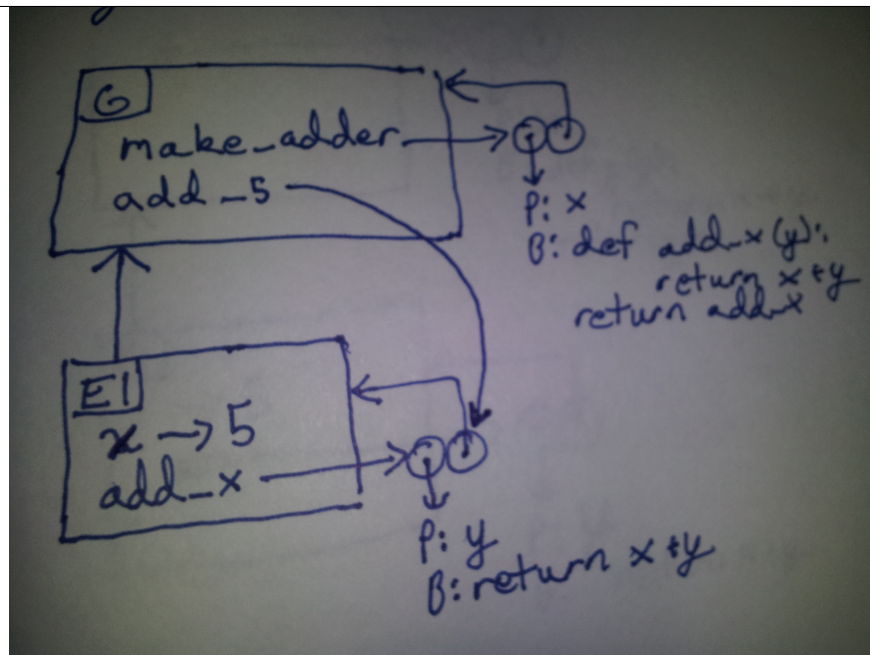 G
make_adder
add_5
P: x
B: def add_x (y):
return x+y
return add_x
E1
x → 5
add_x
P: y
B: return x+y